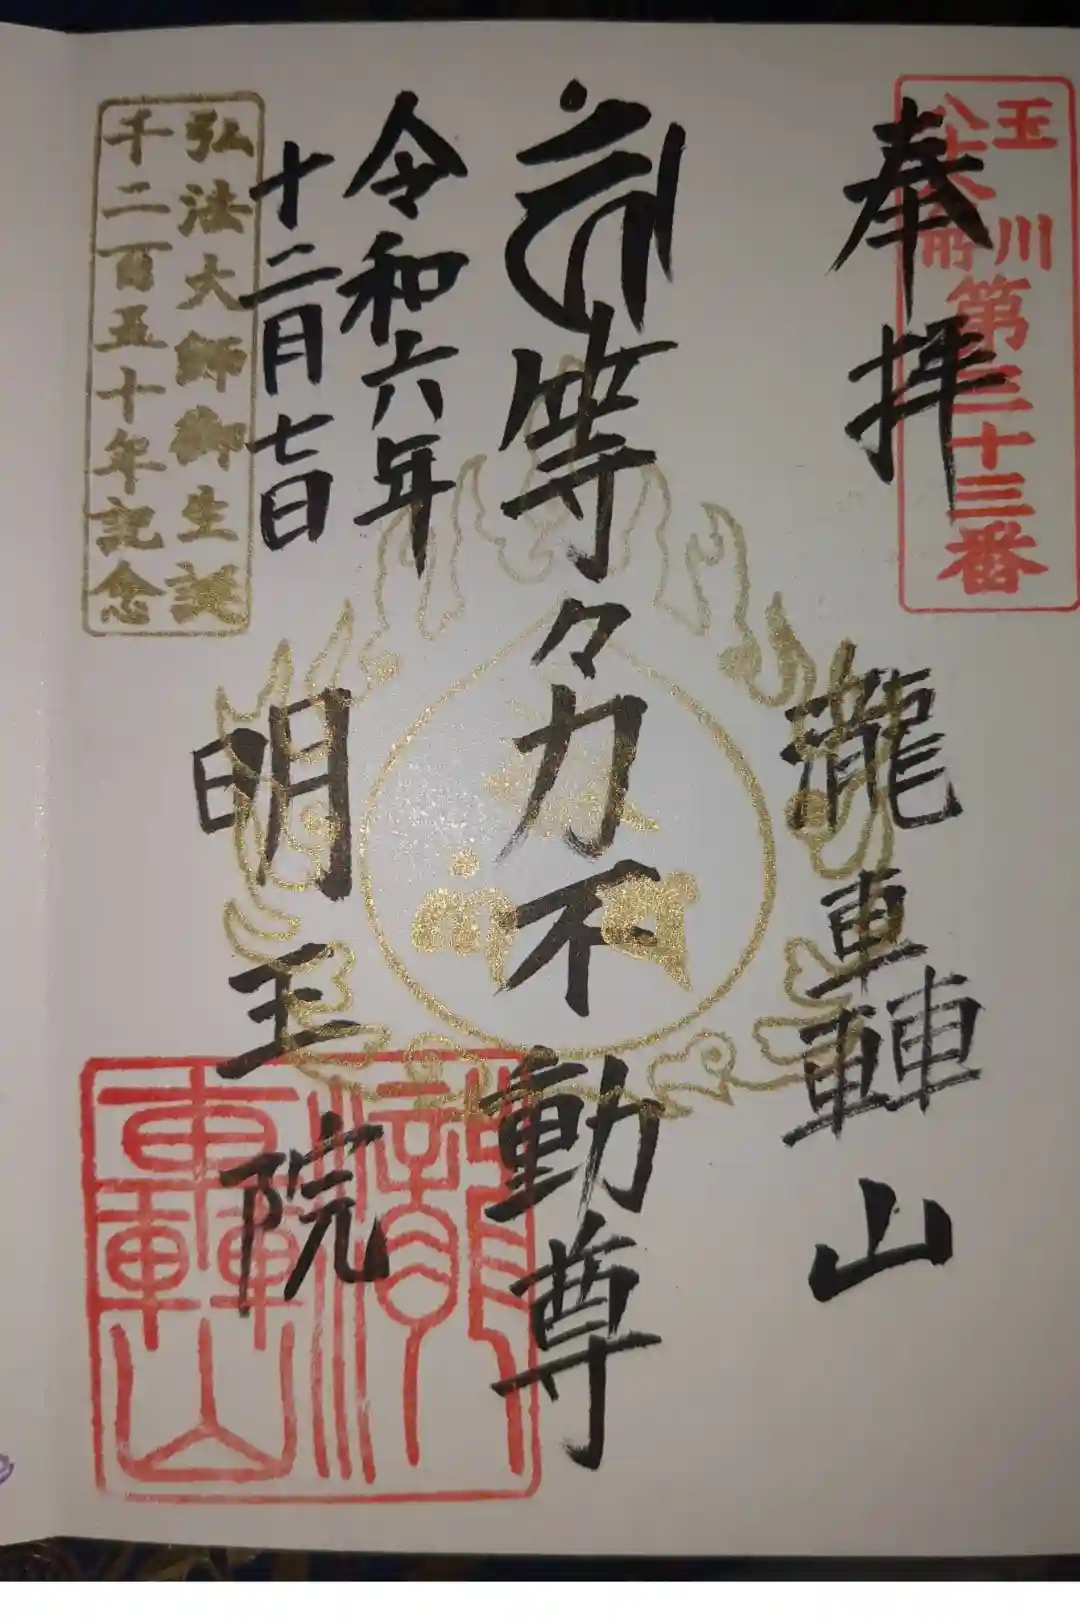 奉拝
玉川
八十八ヶ所
第三十三番
瀧轟山
等々力不動尊
令和六年
十二月七日
明王院
弘法大師御生誕
千二百五十年記念
瀧轟山